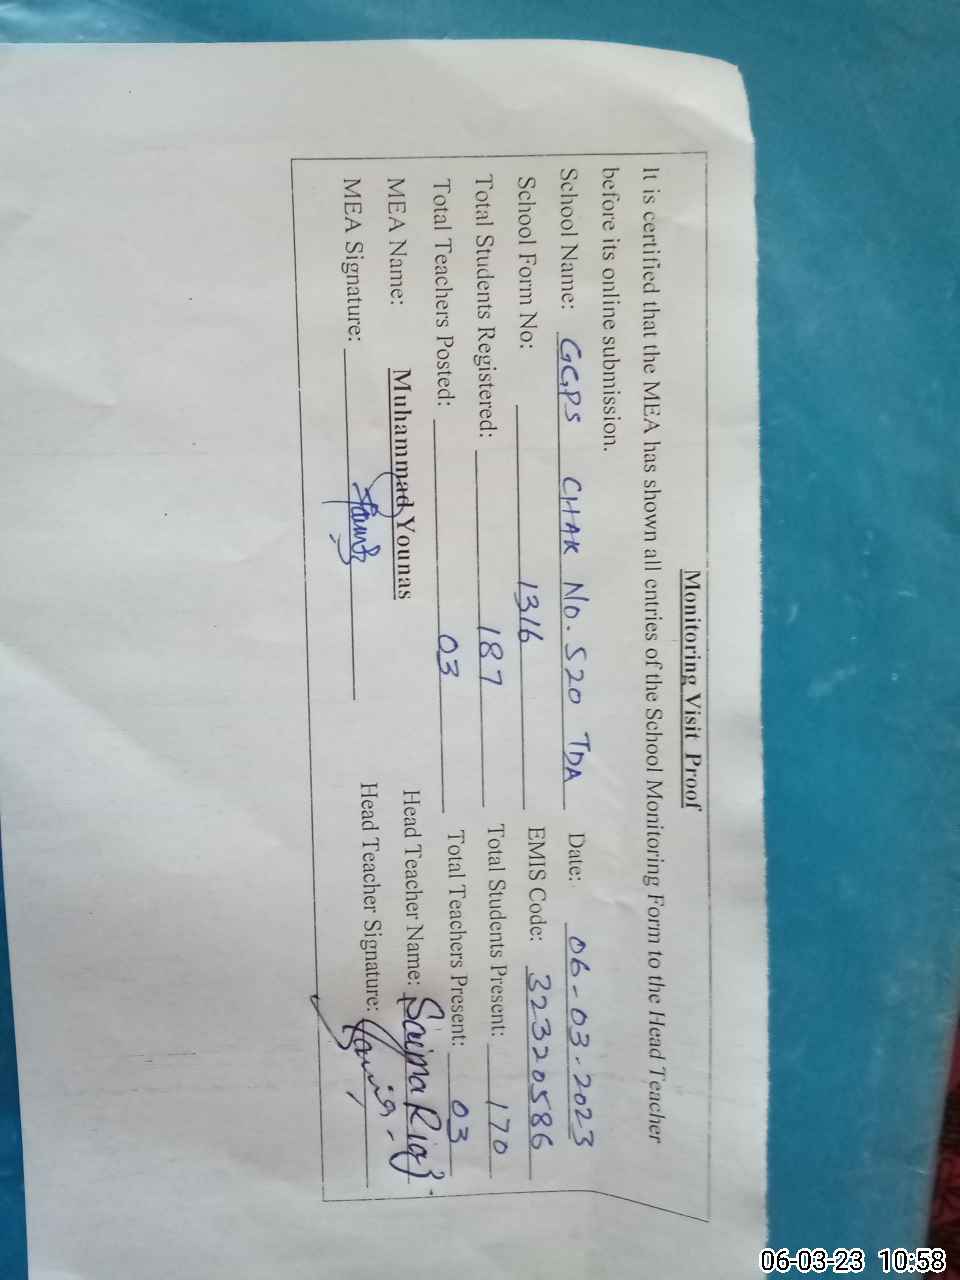 Monitoring Visit Proof
It is certified that the MEA has shown all entries of the School Monitoring Form to the Head Teacher
before its online submission.
School Name: GGPS CHAK No. 520 TDA Date: 06-03-2023
School Form No: 1316 EMIS Code: 32320586
Total Students Registered: 187 Total Students Present: 170
Total Teachers Posted: 03 Total Teachers Present: 03
MEA Name: Muhammad Younas Head Teacher Name: Saima Riaz
MEA Signature: Head Teacher Signature:
06-03-23 10:58